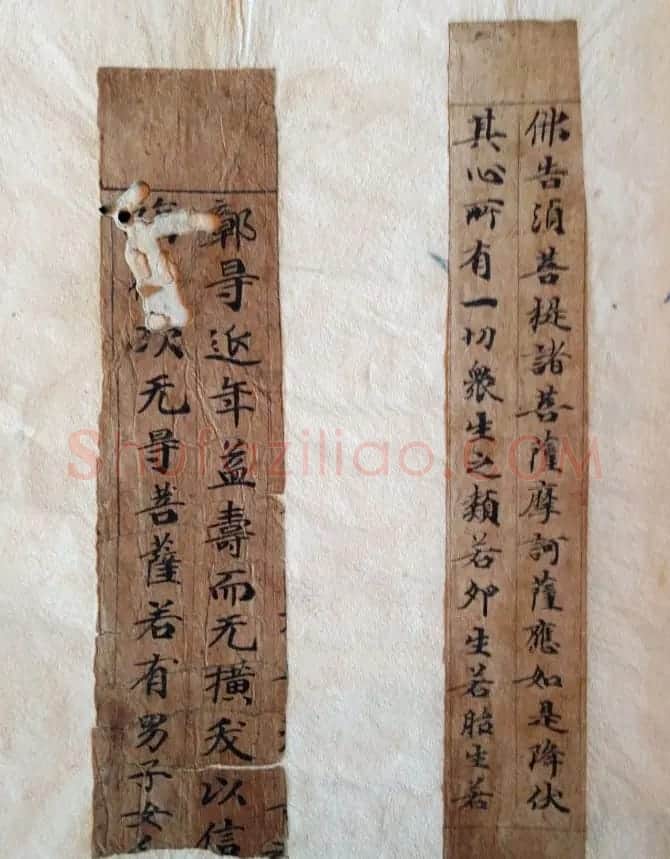 佛告須菩提諸菩薩摩訶薩應如是降伏
其心所有一切衆生之類若卵生若胎生若
鄣㝵近年益壽而无擴我以信
次无㝵菩薩若有男子女
Shufaziliao.COM